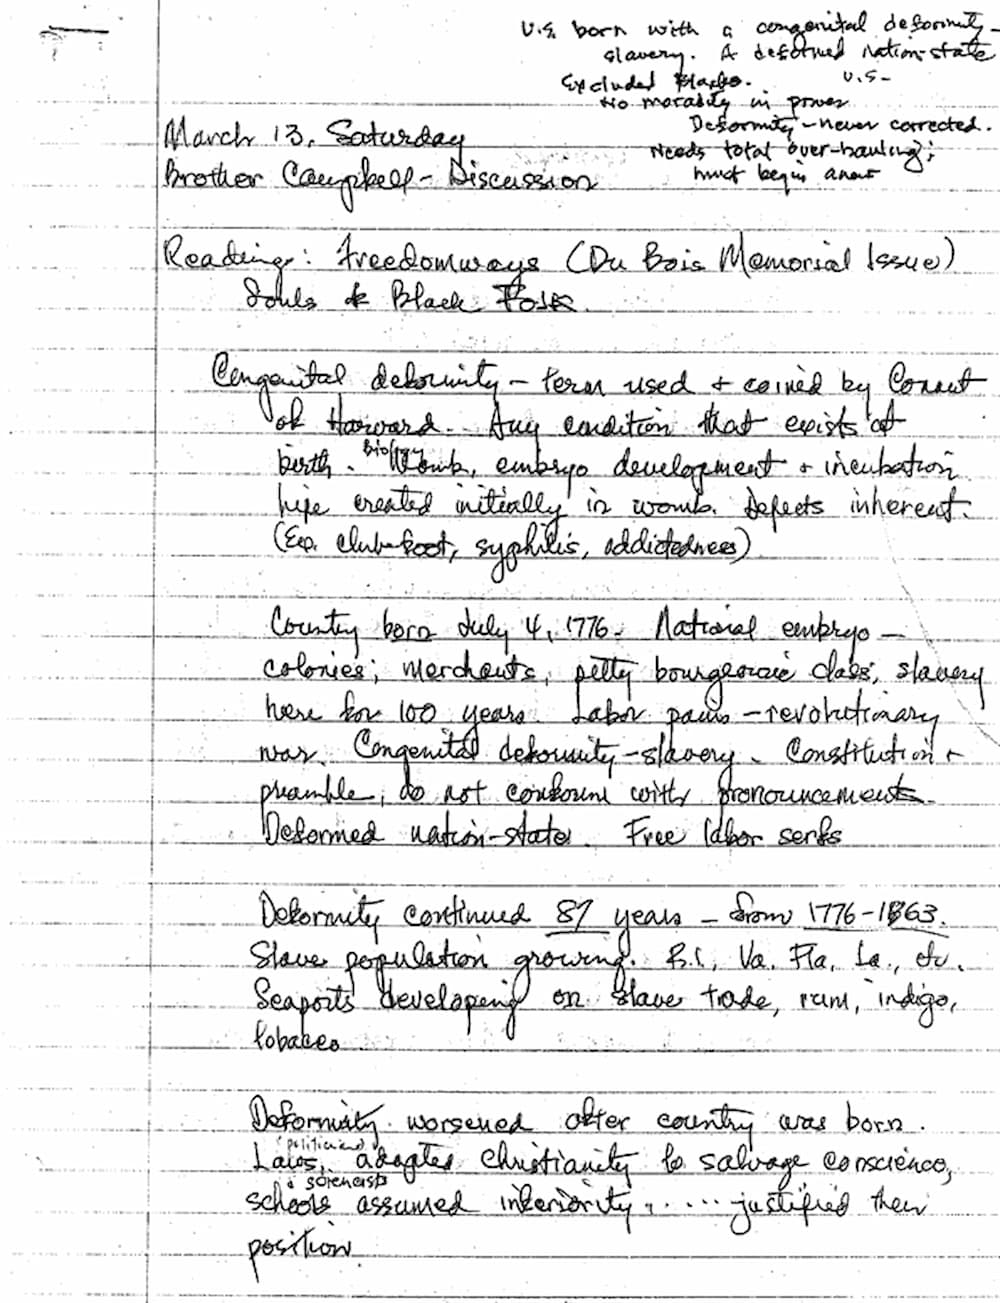 U.S. born with a congenital deformity -
slavery. A deformed nation-state
Excluded Blacks. U.S-
No morality in power
Deformity - never corrected.
Needs total over-hauling;
must begin anew
March 13, Saturday
Brother Campbell - Discussion
Readings: Freedomways (Du Bois Memorial Issue)
Souls of Black Folk.
Congenital deformity - term used + coined by Conant
of Harvard. Any condition that exists at
birth. Biology Womb, embryo development + incubation
life created initially in womb. Defects inherent.
(Exp. club-foot, syphilis, addictedness)
Country born July 4, 1776. National embryo -
colonies; merchants, petty bourgeoisie class; slavery
here for 100 years. Labor pains - revolutionary
war. Congenital deformity - slavery. Constitution +
preamble, do not conform with pronouncements.
Deformed nation-state. Free labor serfs
Deformity continued 87 years - from 1776-1863.
Slave population growing. Va. Fla, La., etc.
Seaports developing on slave trade, rum, indigo,
tobacco
Deformity worsened after country was born.
(politicians)
Laws, adapted Christianity to salvage conscience,
& scientists
schools assumed inferiority..... justified their
position.